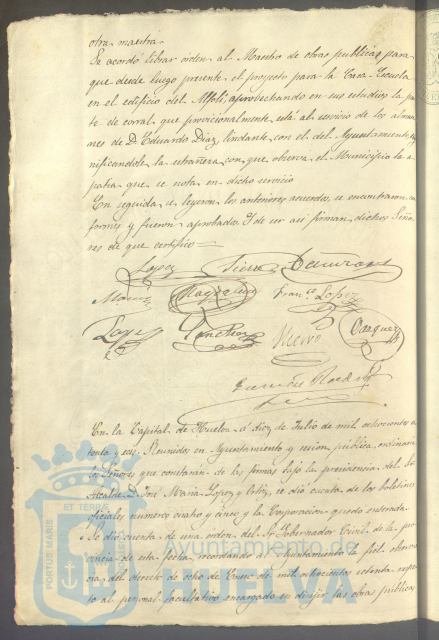 otra maestra.
Se acordó librar orden al Maestro de obras publicas para
que desde luego presente el proyecto para la Casa-Escuela
en el edificio del Alfolí; aprovechando en sus estudios la par-
te de corral que provisionalmente está al servicio de los alma-
nes de D. Eduardo Diaz, lindante con el del Ayuntamiento, sig-
nificandole la estrañeza con que observa el Municipio la a-
patia que se nota en dicho servicio
En seguida se leyeron los anteriores acuerdos, se encontraron con-
formes y fueron aprobados. Y de ser asi firman dichos Seño-
res de que certifico
Lopez
Franco Lopez
Lopez Sanchez Vazquez
En la Capital de Huelva á diez de Julio de mil ochocientos o-
chenta y seis: Reunidos en Ayuntamiento y sesion publica ordinaria
los Señores que constarán de las firmas bajo la presidencia del Sr.
Alcalde D. José Maria Lopez y Ortiz, se dió cuenta de los boletines
oficiales numeros cuatro y cinco y la Corporacion quedó enterada
Se dió cuenta de una orden del Sr. Gobernador Civil de la pro-
vincia de esta fecha, recordando al Ayuntamiento la fiel observan-
cia del decreto de ocho de Enero de mil ochocientos setenta respec-
to al personal facultativo encargado en dirijir las obras publicas
ET TERRÆ
PORTUS MARIS
Ayuntamiento
HUELVA